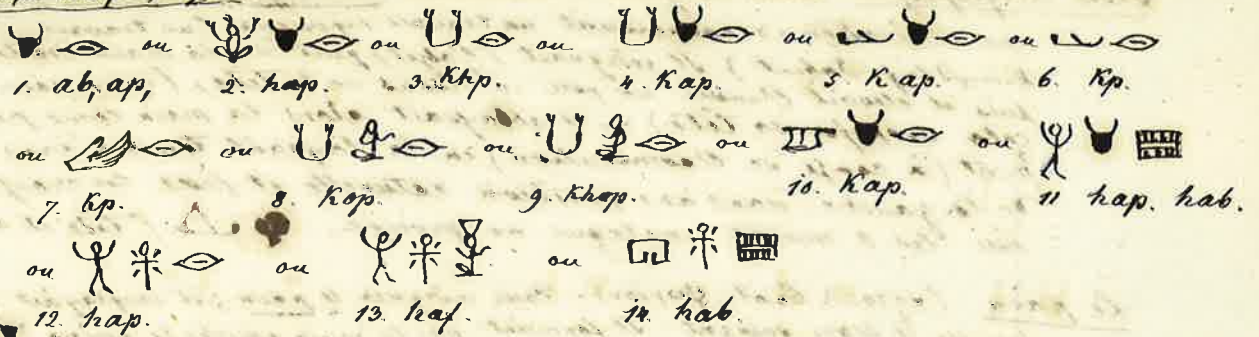 ou ou ou ou ou
1. ab, ap, 2. hap. 3. Khp. 4. Kap. 5. Kap. 6. Kp.
ou ou ou ou ou
7. Kp. 8. Kop. 9. Khop. 10. Kap. 11 hap. hab.
ou ou ou
12. hap. 13. haf. 14. hab.